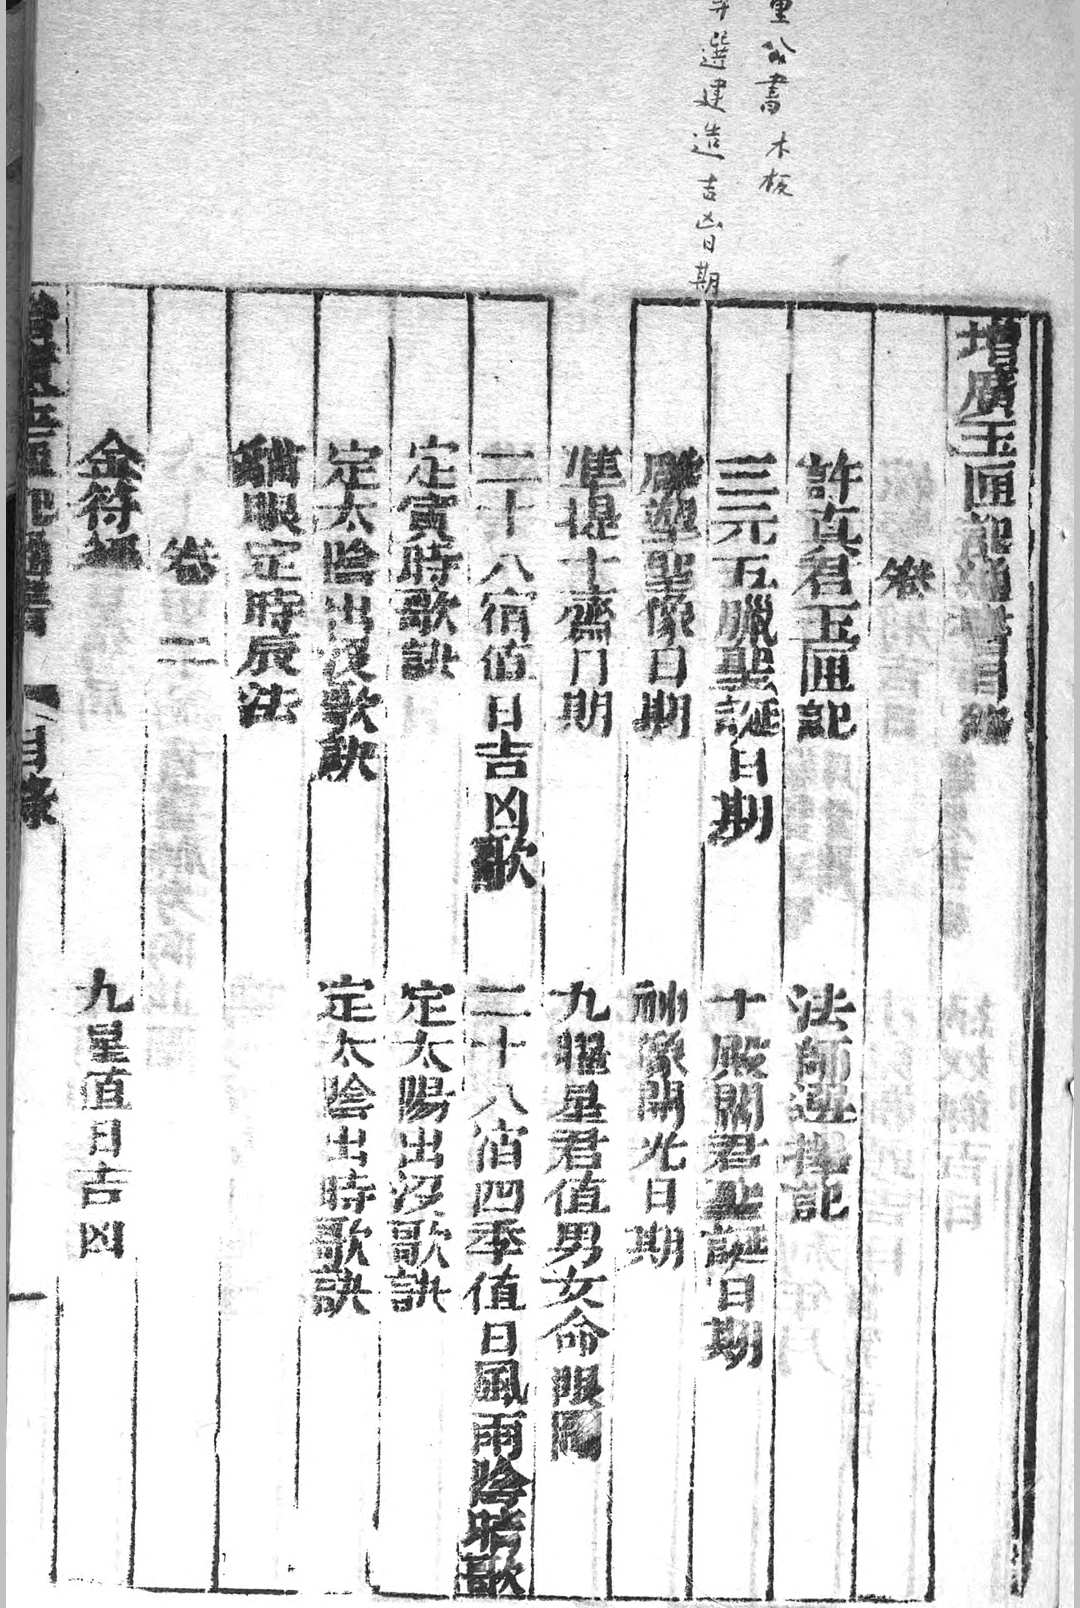 書木板
選建造吉凶日期
增廣玉匣記通書目錄
卷
許真君玉匣記
法師選擇記
三元五臘聖誕日期
十殿閻君聖誕日期
雕塑聖像日期
神像開光日期
準提十齋日期
九曜星君值男女命限圖
二十八宿值日吉凶歌
二十八宿四季值日風雨陰晴歌
定寅時歌訣
定太陽出沒歌訣
定太陰出沒歌訣
定太陰出時歌訣
貓眼定時辰法
卷二
金符經
九星值日吉凶
目錄